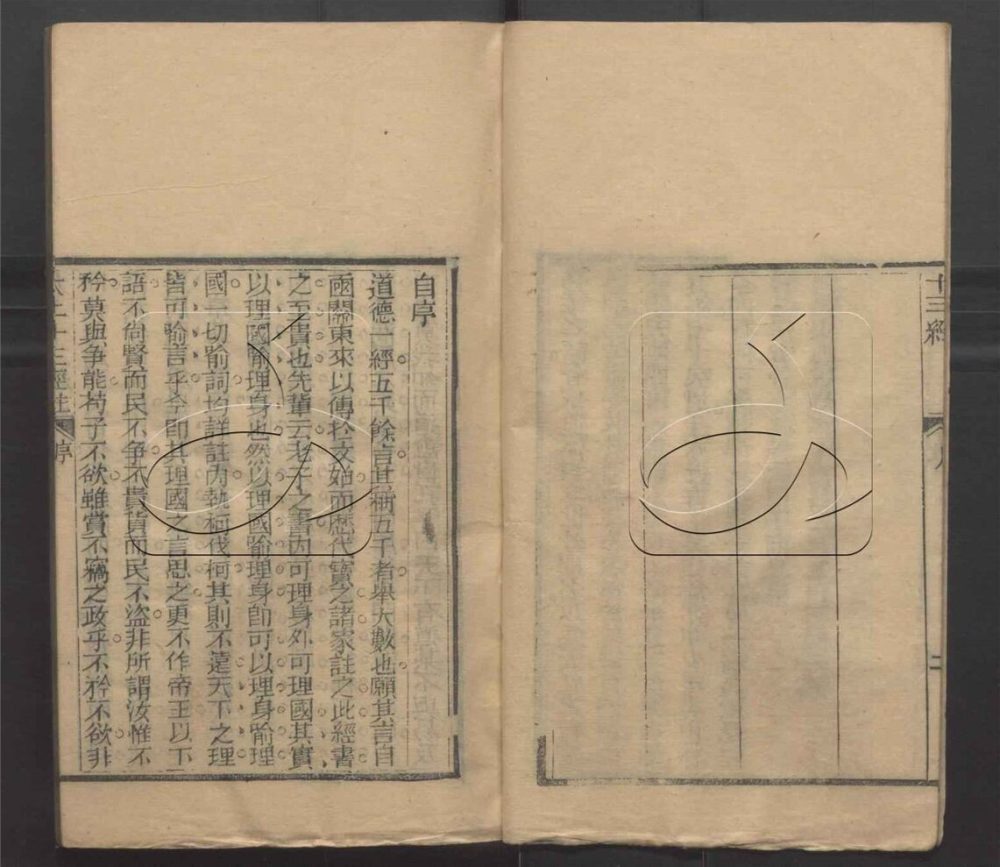 自序
道德一經五千餘言其稱五千者舉大數也願其言自
函關東來以傳於文始而歷代寶之諸家註之此經書
之至貴也先輩云老子之書內可理身外可理國其實
以理國喻理身也然以理國喻理身即可以理身喻理
國一切喻詞均詳註內執柯伐柯其則不遠天下之理
皆可喻言乎今即其理國之言思之更不作帝王以下
語不尚賢而民不爭不貴貨而民不盜非所謂汝惟不
矜莫與爭能苟子不欲雖賞不竊之政乎不矜不欲非
十三經註 序
十三經
二